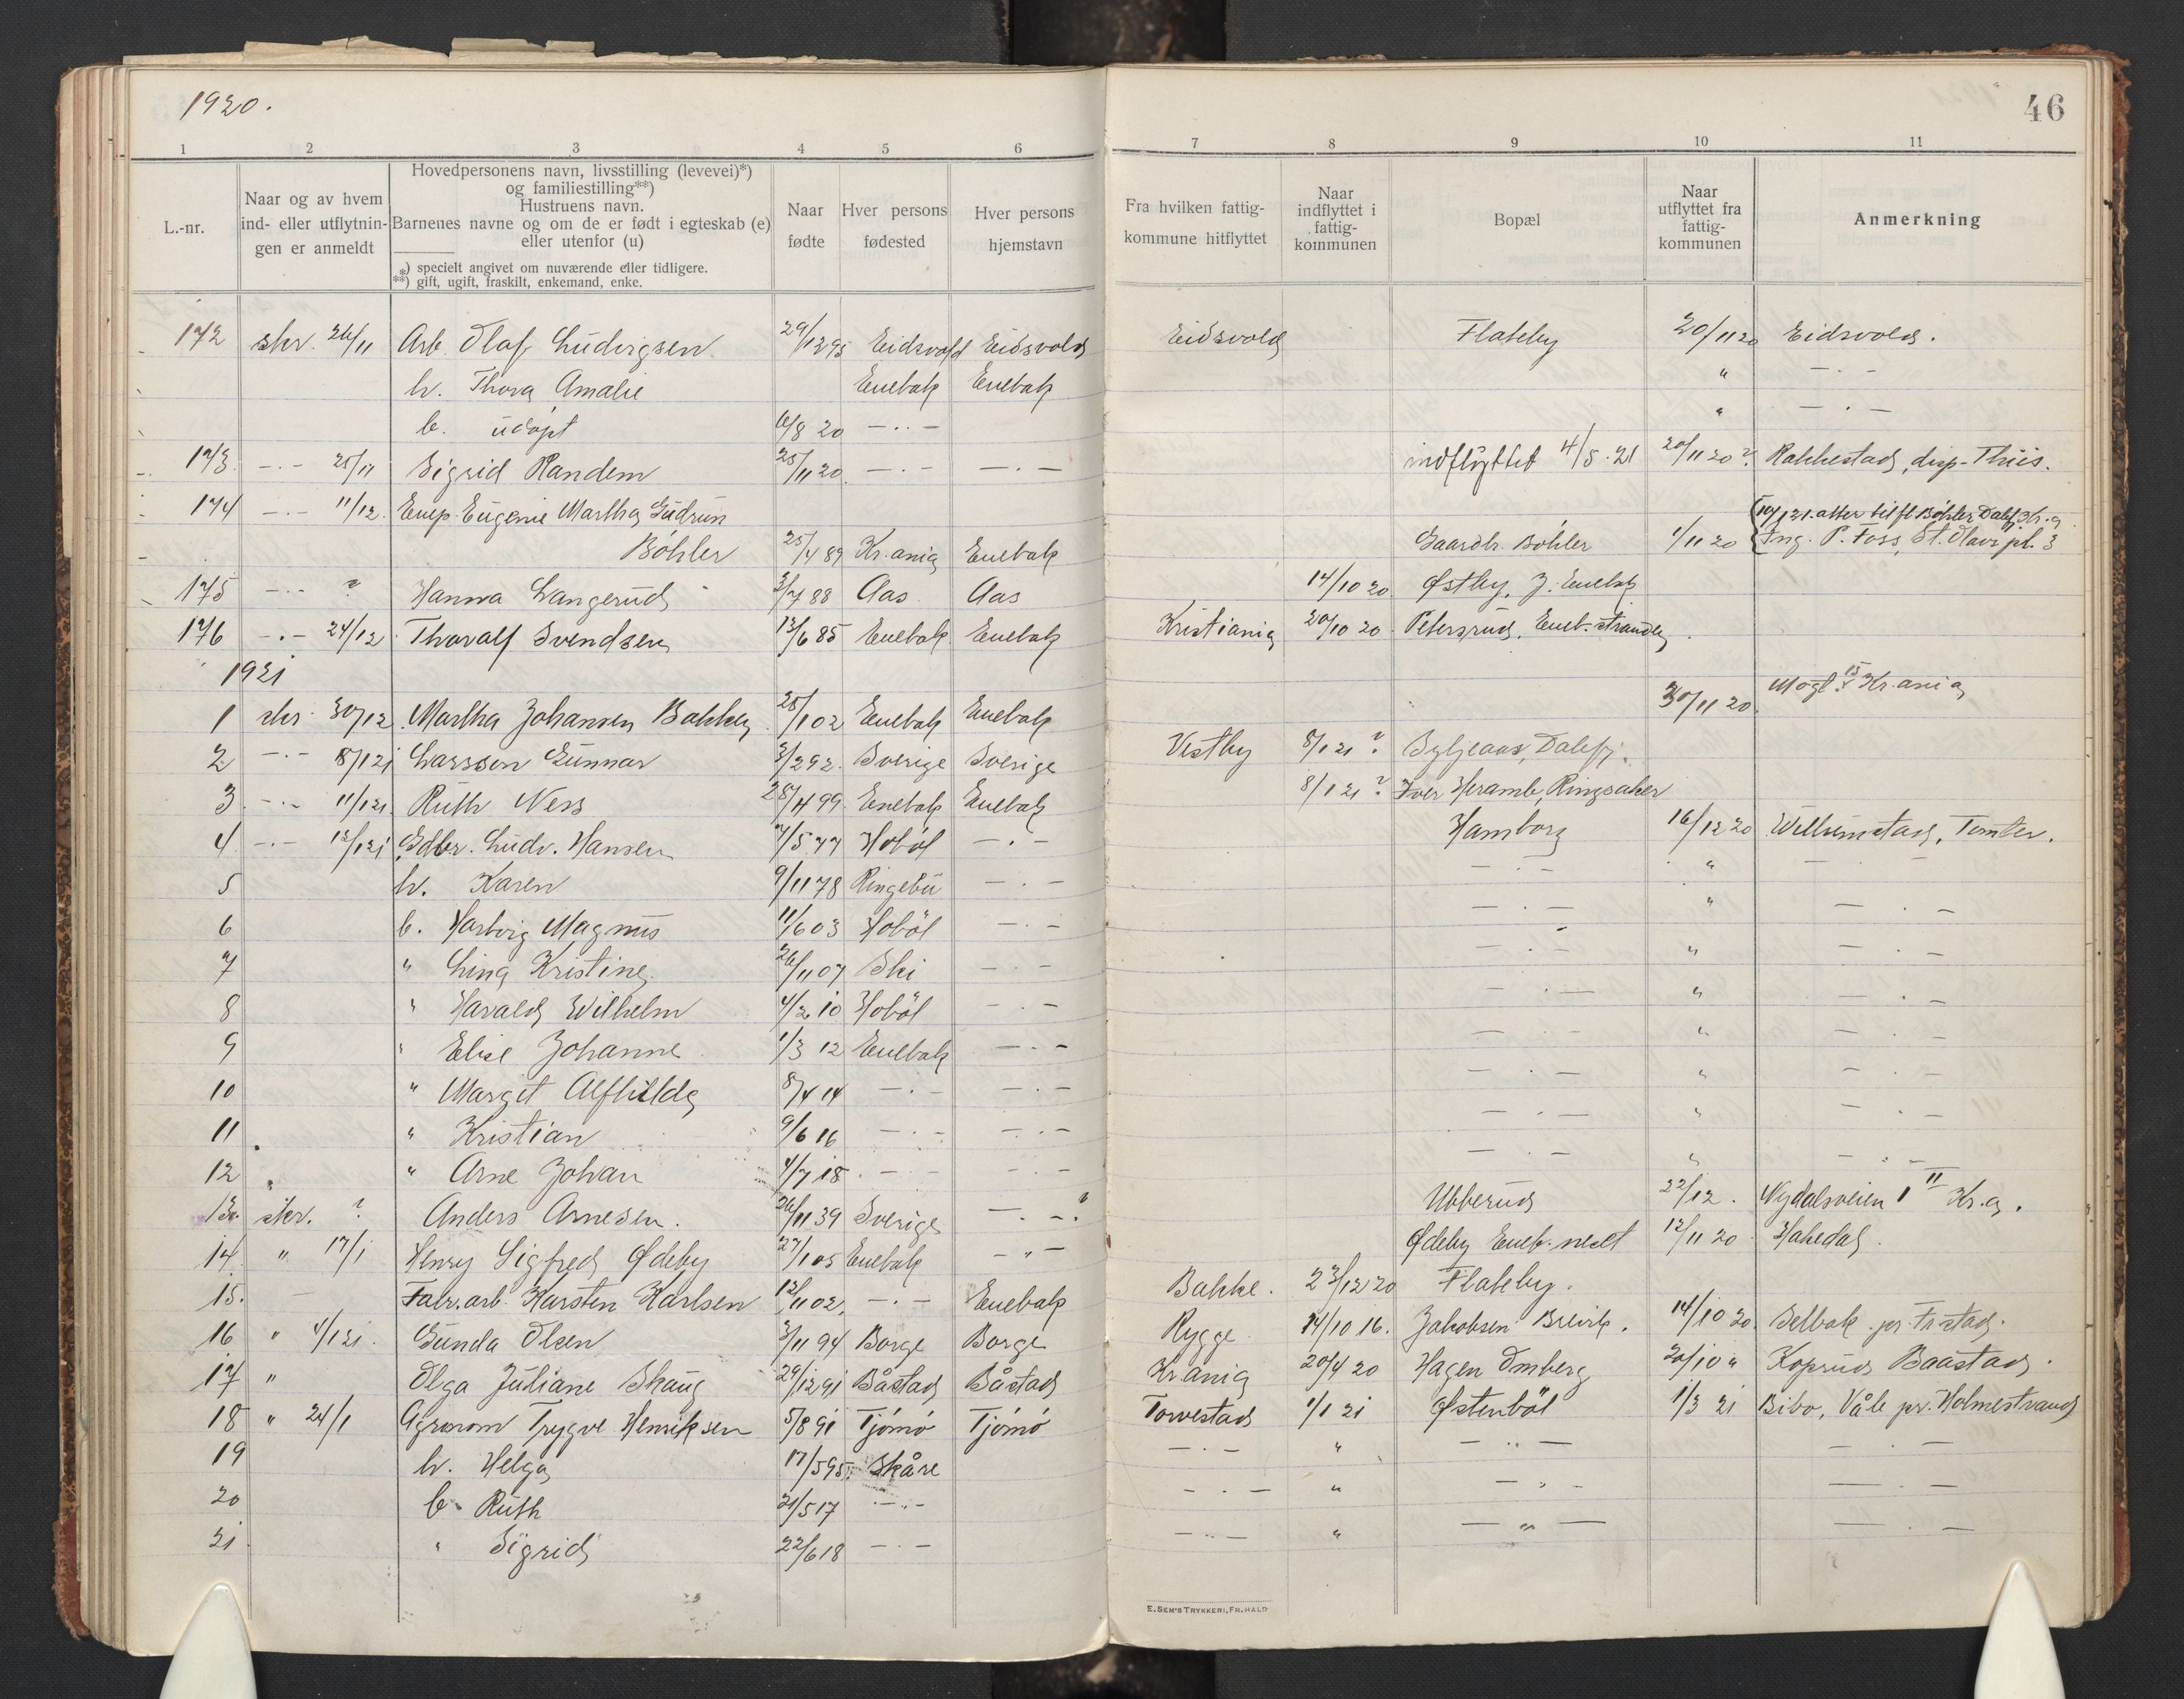 1920.
46
1 2 3 4 5 6 7 8 9 10 11
L.-nr.
Naar og av hvem
ind- eller utflytnin-
gen er anmeldt
Hovedpersonens navn, livsstilling (levevei)*)
og familiestilling**)
Hustruens navn.
Barnenes navne og om de er født i egteskab (e)
eller utenfor (u)
*) specielt angivet om nuværende eller tidligere.
**) gift, ugift, fraskilt, enkemand, enke.
Naar
fødte
Hver persons
fødested
Hver persons
hjemstavn
Fra hvilken fattig-
kommune hitflyttet
Naar
indflyttet i
fattig-
kommunen
Bopæl
Naar
utflyttet fra
fattig-
kommunen
Anmerkning
172 skr. 26/11 Arb. Olaf Ludvigsen 29/12 95 Eidsvold Eidsvold Eidsvold Flateby 20/11 20 Eidsvold.
h. Thora Amalie Enebak Enebak " — · —
b. udøpt 6/8 20 — · · — " — · —
173 — · — 25/11 Sigrid Randem 25/11 20 — · — — · — indflyttet 4/5 · 21 20/11 20? Rakkestad, disp. Thiis.
174 — · — 11/12 Enep. Eugenie Martha Gudrun atter tilfl. Bøhler Dalefj. Kr.a
Bøhler 25/4 89 Kr.ania Enebak Gaardbr. Bøhler 1/11 20 Ing. P. Foss, St. Olavs pl. 3
175 — · — ? Hanna Langerud 3/7 88 Aas Aas 14/10 20 Østby, Y. Enebak
176 — · — 24/12 Thoralf Svendsen 13/6 85 Enebak Enebak Kristiania 20/10 20 Petersrud, Eneb. stranda
1921
1 skr. 30/12 Martha Johansen Bakken 25/1 02 Enebak Enebak 30/11 20 Kr.ania
2 — · — 8/1 21 Larsson Gunnar 3/2 92 Sverige Sverige Vestby 8/1 21? Dalefj.
3 — · — 11/1 21 Ruth Ness 25/4 99 Enebak Enebak 8/1 21? Iver Heramb, Ringsaker
4 — · — 12/1 21 Gdbr. Ludv. Hansen 7/5 77 Hobøl — · — Hamborg 16/12 20 Willumstad, Tomter.
5 h. Karen 9/11 78 Ringebu — · — — · — "
6 b. Hartvig Magnus 11/6 03 Hobøl — · — — · — " — · —
7 " Lina Kristine 26/11 07 Ski — · — — · — " — · —
8 " Harald Wilhelm 4/2 10 Hobøl — · — — · — " — · —
9 " Elise Johanne 1/3 12 Enebak — · — — · — " — · —
10 " Margit Alfhilda 8/4 14 — · — — · — — · — " — · —
11 " Kristian 9/6 16 — · — — · — — · — " — · —
12 " " Arne Johan 4/7 18 — · — — · — — · — " — · —
13. skr. ? Anders Arnesen. 26/11 39 Sverige — · —? Ubberud 22/12. Nydalsveien 1 II Kr.a.
14. " 17/1 Henry Sigfred Ødeby 27/1 05 Enebak — " — Ødeby Eneb. nedt 12/11 20 Hakedal.
15. Fabr.arb. Karsten Karlsen 12/11 02. — · — Enebak Bakke. 23/12 20 Flateby.
16 " 4/1 21. Gunda Olsen 3/11 94 Borge Borge Rygge 14/10 16. Jakobsen Brevik. 14/10 20 Selbak pr. Fr.stad.
17 " Olga Juliane Skaug 29/12 91 Båstad Båstad Kr.ania 20/4 20 Hagen Omberg 20/10 " Koprud Baastad.
18 " 24/1 Agronom Trygve Henriksen 5/8 91 Tjømø Tjømø Torvestad 1/1 21 Østenbøl 1/3 21 Bibo, Våle pr. Holmestrand
19 h. Helga 17/5 95 Skåre — · — " — · · — — · —
20 b. Ruth 21/5 17 — · — — · — " — " — — · —
21 " Sigrid 22/6 18 — · — — · — " — " — — · —
E. SEM'S TRYKKERI, FR.HALD